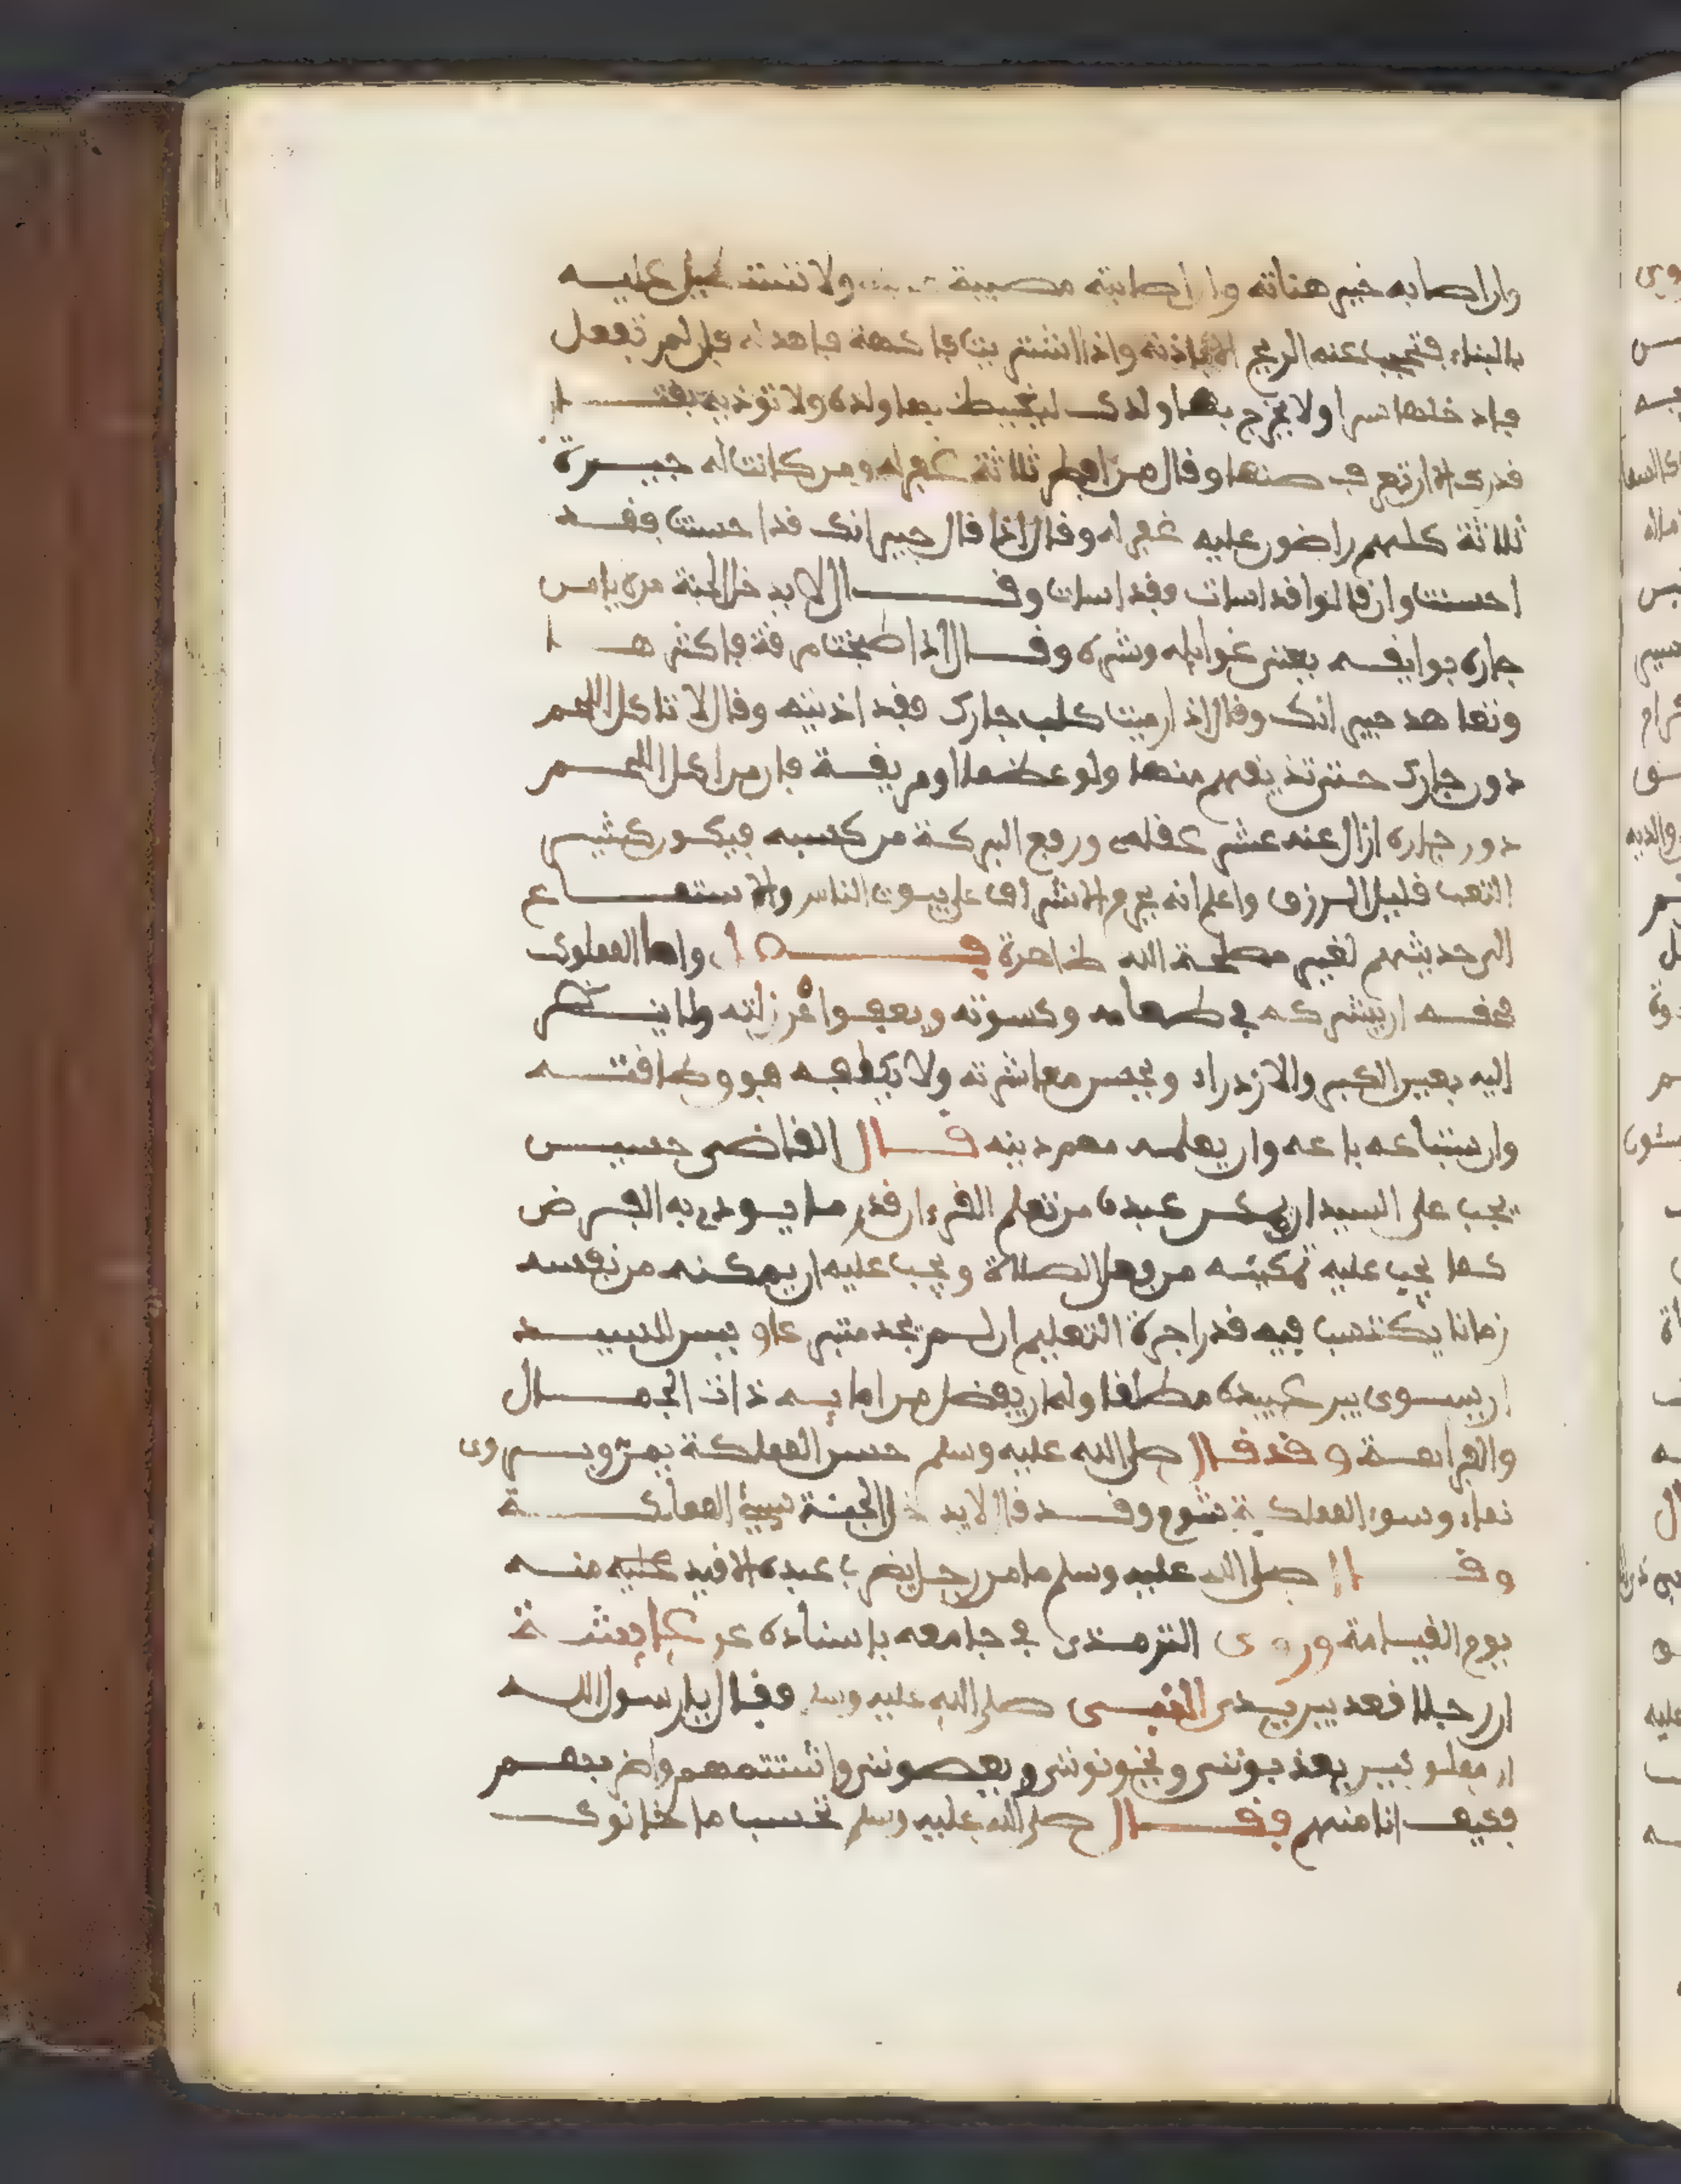 وان اصابه خير هناته وان اصابته مصيبة ولا تستطيل عليه
بالبناء فتحجب عنه الريح الا باذنه واذا اشتريت فاكهة فاهد له فان لم تفعل
فادخلها سرا ولا يخرج بها ولدك ليغيظ بها ولده ولا توذيه بقتا
قدرك الا ان تغرف منها وقال من ثلاثة غفر له ومن كانت له جيرة
ثلاثة كلهم راضون عليه غفر له وقال اذا قال جيرانك قد احسنت فقد
احسنت وان قالوا قد اسات فقد اسات وقال لا يدخل الجنة من لا يامن
جاره بوايقه يعني غوايله وشره وقال اذا طبخت مرقة فاكثرها
وتعاهد جيرانك وقال اذا رميت كلب جارك فقد اذيته وقال لا تاكل اللحم
دون جارك حتى تذيقهم منها ولو عظما او مريقة فان من اكل اللحم
دون جاره ازال عنه عشر عقله ورفع البركة من كسبه فيكون كثير
التعب قليل الرزق واعلم انه يحرم الاشراف على بيوت الناس والاستماع
الى حديثهم لغير مصلحة الله ظاهرة واما المملوك
فحقه ان يشركه في طعامه وكسوته ويعفوا عن زلته ولا ينظر
اليه بعين الكبر والازدراء ويحسن معاشرته ولا يكلفه فوق طاقته
وان شا باعه وان يعلمه مهم دينه قال القاضي حسين
يجب على السيد ان يمكن عبده من تعلم القرءان قدر ما يودي به الفرض
كما يجب عليه تمكينه من فعل الصلاة ويجب عليه ان يمكنه من نفسه
زمانا يكتسب فيه قدر اجرة التعليم ان لم يجد متبرعا ويسن للسيد
ان يسوي بين عبيده مطلقا وله ان يفضل من امايه ذات الجمال
والفراهة وقد قال صلى الله عليه وسلم حسن الملكة يمن ويروى
نماء وسوء الملكة شوم وقد قال لا يدخل الجنة سيئ الملكة
وقال صلى الله عليه وسلم ما من رجل يضرب عبده الا قيد عليه منه
يوم القيامة وروى الترمذي في جامعه باسناده عن عايشة
ان رجلا قعد بين يدي النبي صلى الله عليه وسلم فقال يا رسول الله
ان مملوكين يكذبونني ويخونونني ويعصونني واشتمهم واضربهم
فكيف انا منهم فقال صلى الله عليه وسلم تحسب ما خانوك